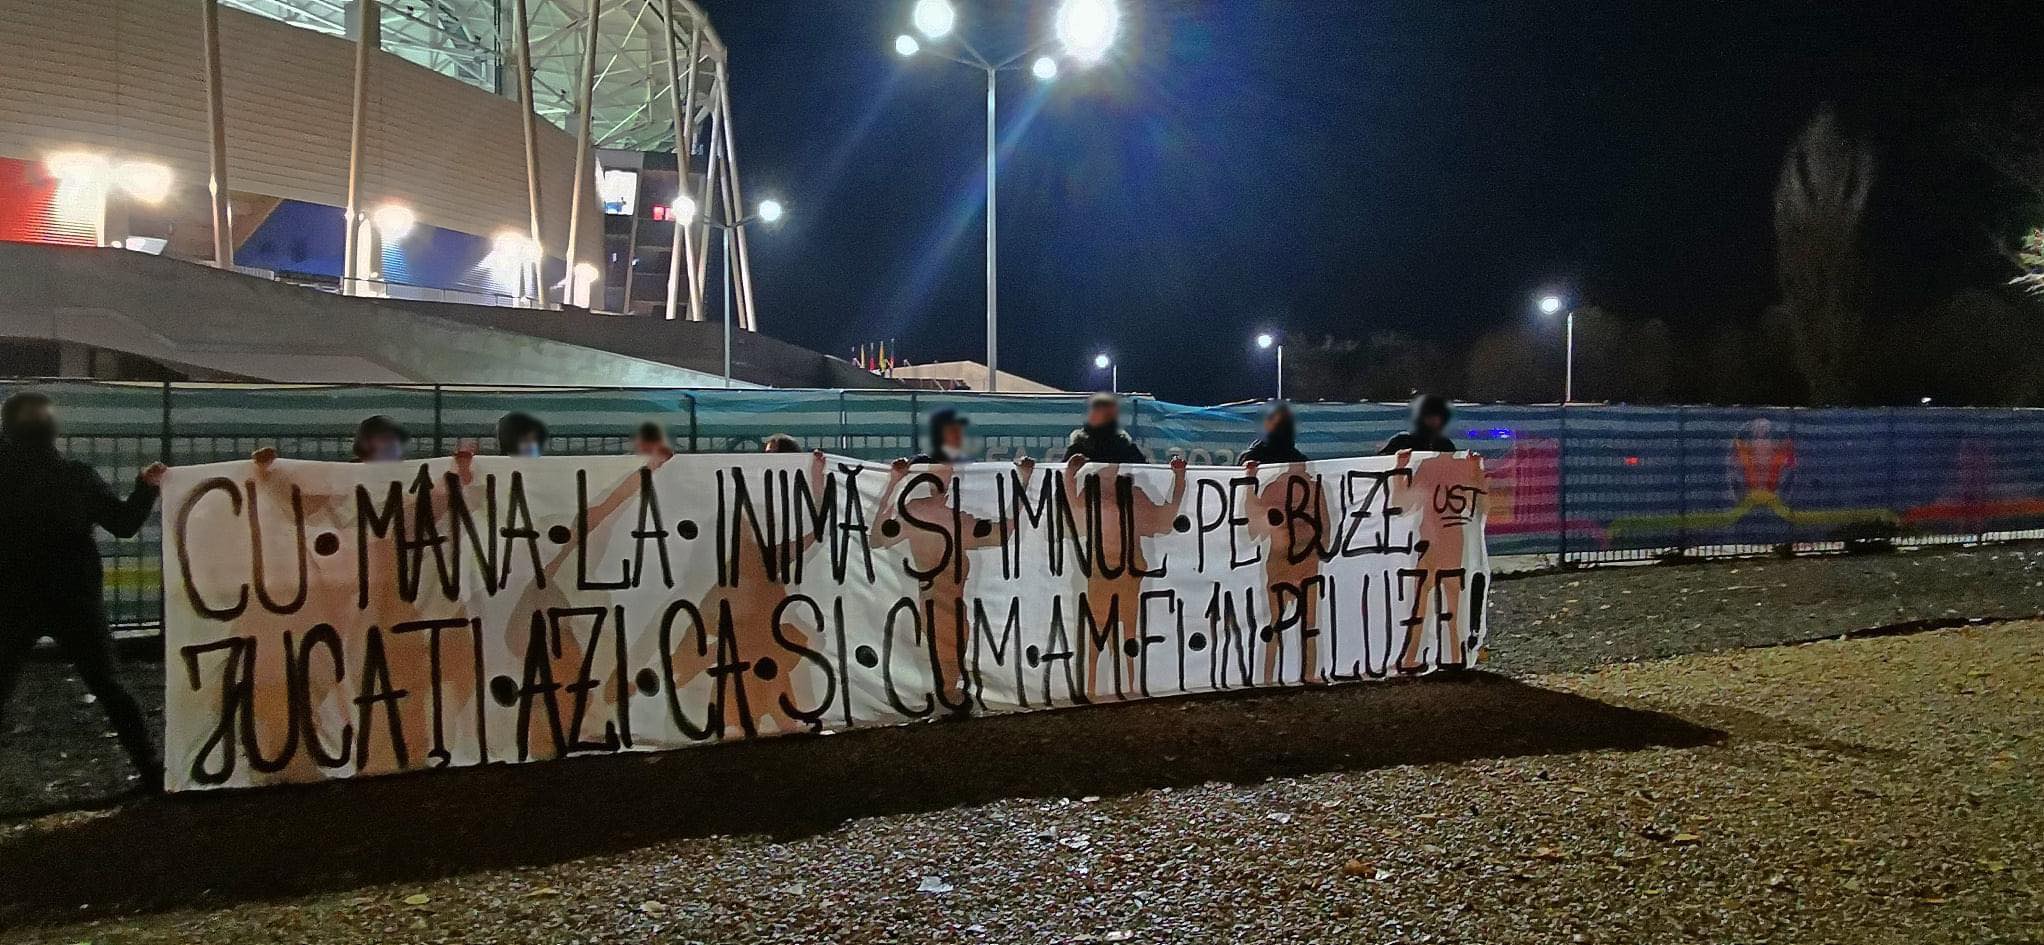 CU•MÂNA•LA•INIMĂ•ȘI•IMNUL•PE•BUZE,
UST
JUCAȚI•AZI•CA•ȘI•CUM•AM•FI•ÎN•PELUZE!